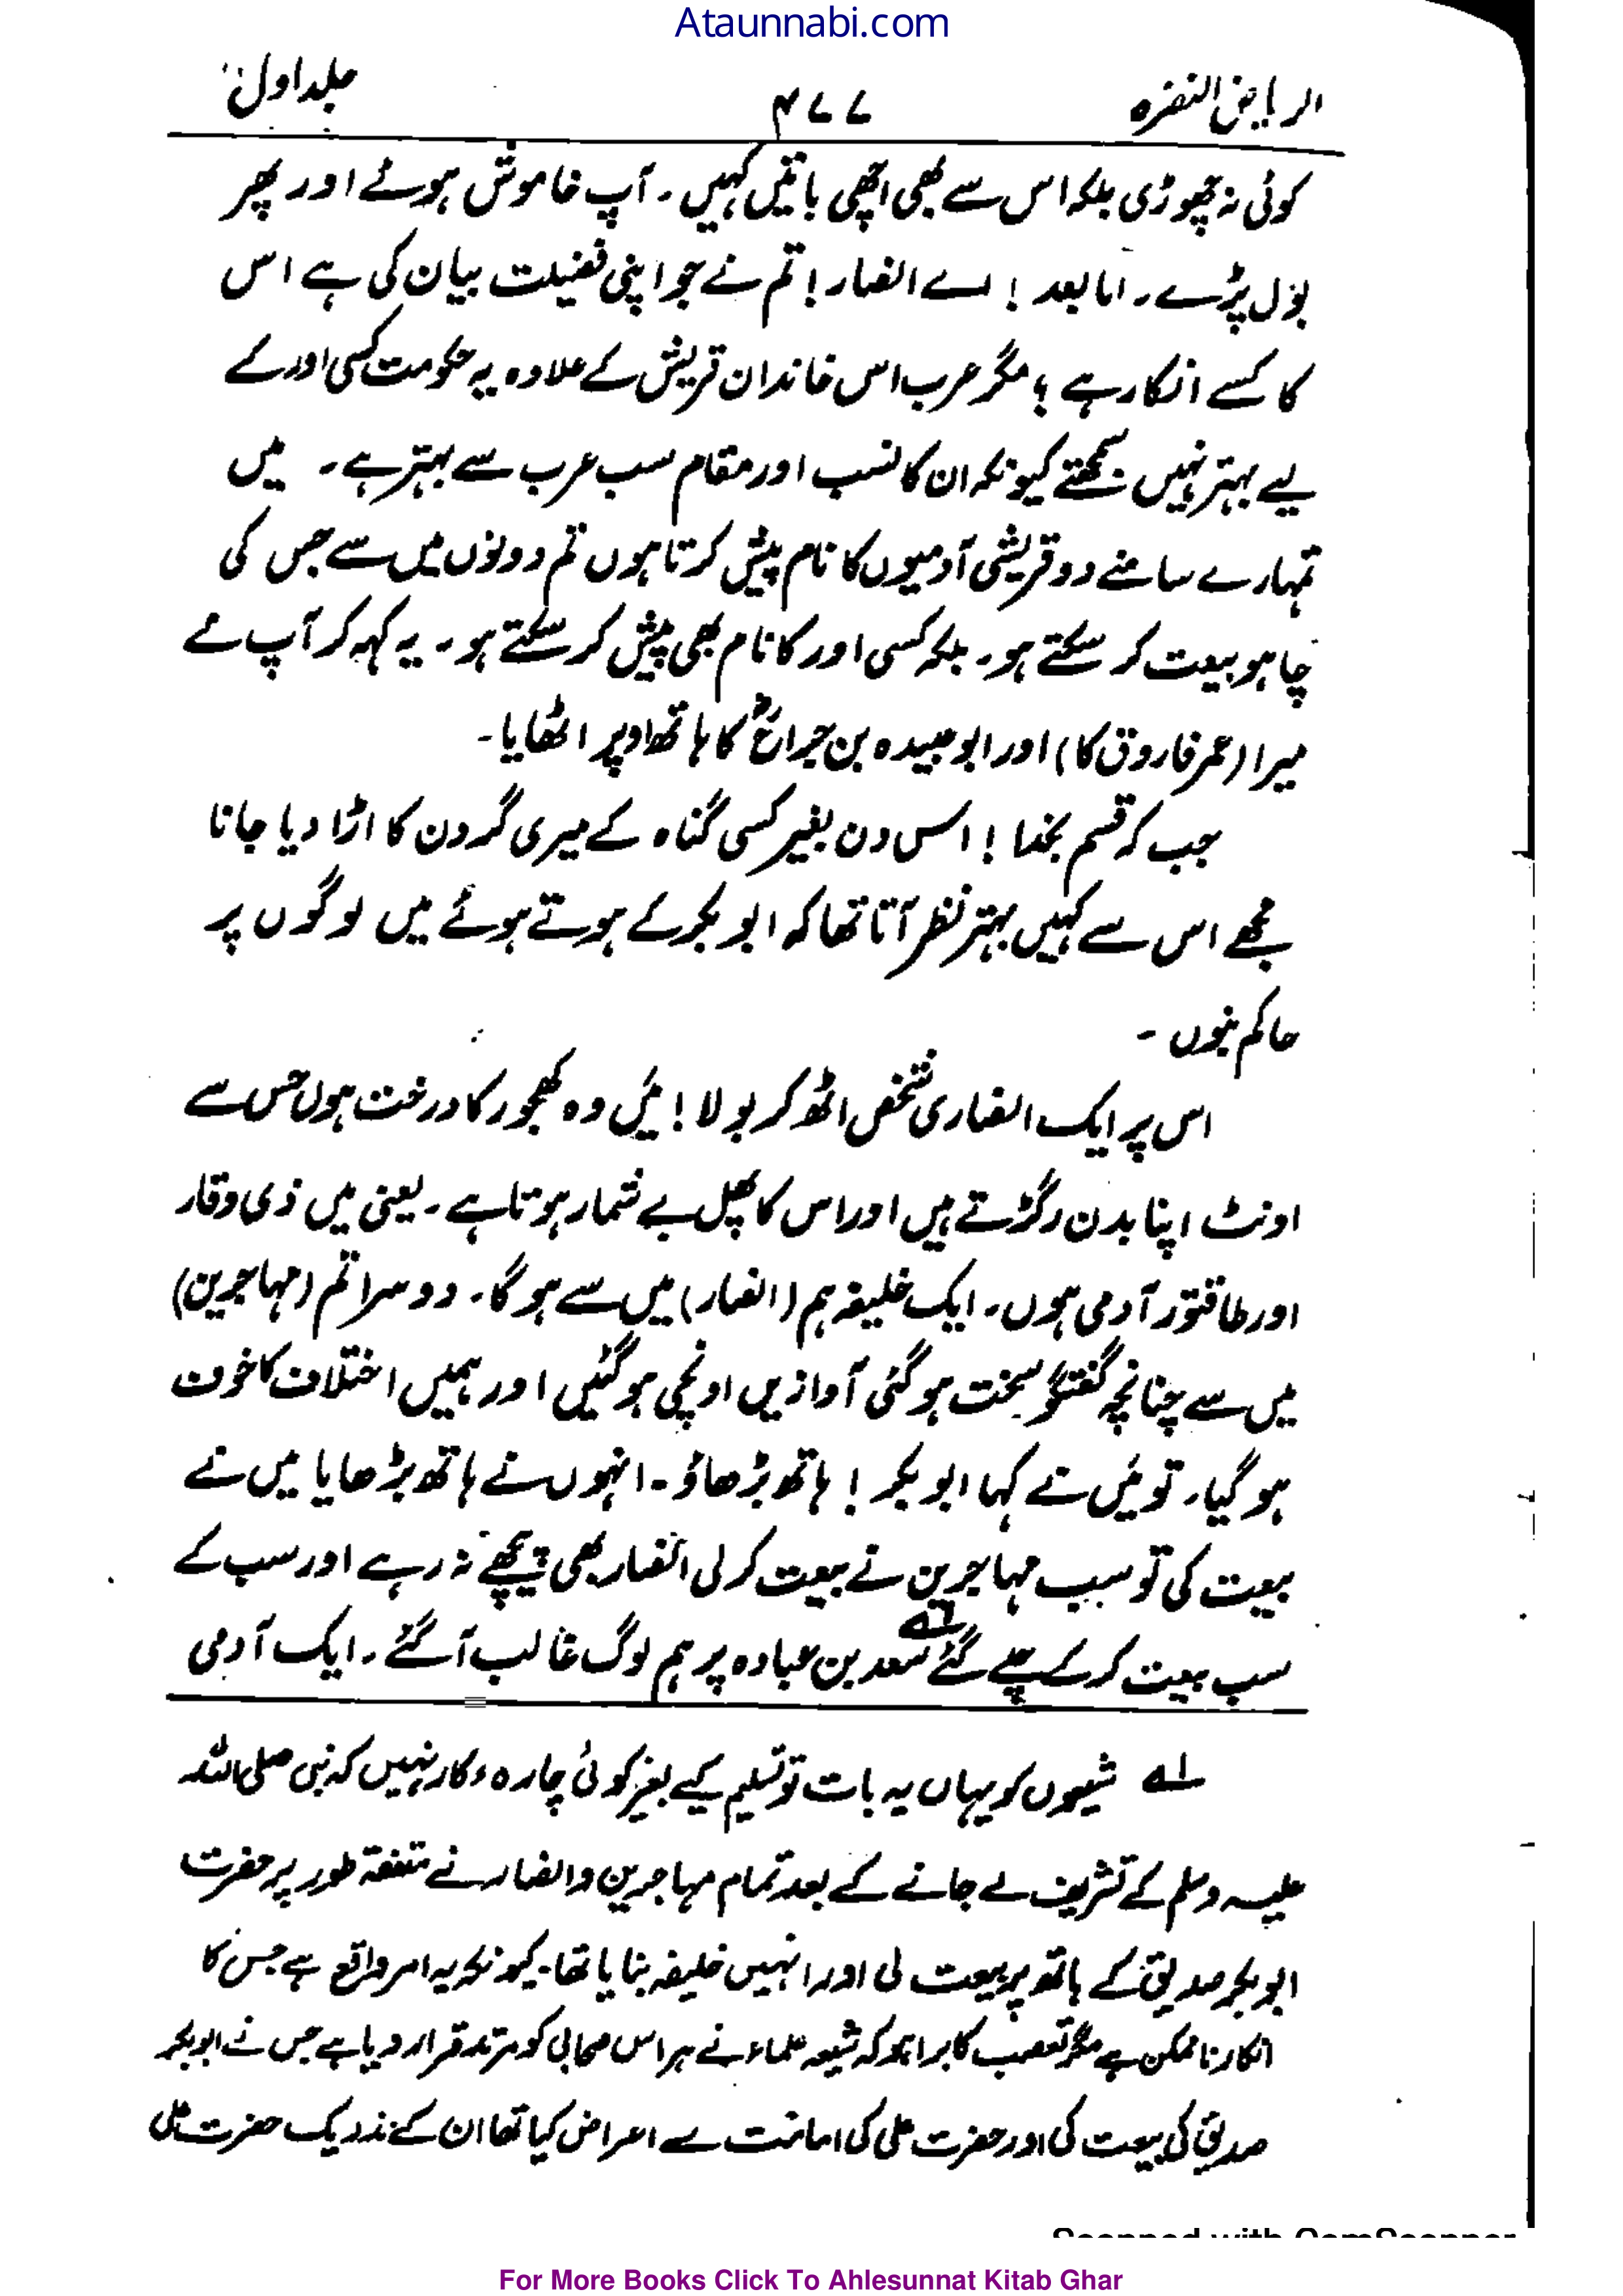 Ataunnabi.com
الریاض النضرہ ۴۷۷ جلد اول
کوئی نہ چھوڑی بلکہ اس سے بھی اچھی باتیں کہیں۔ آپ خاموش ہوئے اور پھر
بول پڑے۔ اما بعد! اے انصار! تم نے جو اپنی فضیلت بیان کی ہے اس
کا کسے انکار ہے؟ مگر عرب اس خاندان قریش کے علاوہ یہ حکومت کسی اور کے
لیے بہتر نہیں سمجھتے کیونکہ ان کا نسب اور مقام سب عرب سے بہتر ہے۔ میں
تمہارے سامنے دو قریشی آدمیوں کا نام پیش کرتا ہوں تم دونوں میں سے جس کی
چاہو بیعت کر سکتے ہو۔ بلکہ کسی اور کا نام بھی پیش کر سکتے ہو۔ یہ کہہ کر آپ نے
میرا (عمر فاروق کا) اور ابو عبیدہ بن جراحؓ کا ہاتھ اوپر اٹھایا۔
جب کہ قسم بخدا! اس دن بغیر کسی گناہ کے میری گردن کا اڑا دیا جانا
مجھے اس سے کہیں بہتر نظر آتا تھا کہ ابو بکر کے ہوتے ہوئے میں لوگوں پر
حاکم بنوں۔
اس پر ایک انصاری شخص اٹھ کر بولا! میں وہ کھجور کا درخت ہوں جس سے
اونٹ اپنا بدن رگڑتے ہیں اور اس کا پھل بے شمار ہوتا ہے۔ یعنی میں ذی وقار
اور طاقتور آدمی ہوں۔ ایک خلیفہ ہم (انصار) میں سے ہو گا۔ دوسرا تم (مہاجرین)
میں سے چنانچہ گفتگو سخت ہو گئی آوازیں اونچی ہو گئیں اور ہمیں اختلاف کا خوف
ہو گیا۔ تو میں نے کہا ابو بکر! ہاتھ بڑھاؤ۔ انہوں نے ہاتھ بڑھایا میں نے
بیعت کی تو سب مہاجرین نے بیعت کر لی انصار بھی پیچھے نہ رہے اور سب کے
سب بیعت کر کے چلے گئے لہ سعد بن عبادہ پر ہم لوگ غالب آ گئے۔ ایک آدمی
لہ شیعوں کو یہاں یہ بات تو تسلیم کیے بغیر کوئی چارہ ء کار نہیں کہ نبی صلی اللہ
علیہ وسلم کے تشریف لے جانے کے بعد تمام مہاجرین و انصار نے متفقہ طور پر حضرت
ابو بکر صدیقؓ کے ہاتھ پر بیعت لی اور انہیں خلیفہ بنایا تھا۔ کیونکہ یہ امر واقع ہے جس کا
انکار ناممکن ہے مگر تعصب کا برا ہو کہ شیعہ علماء نے ہر اس صحابی کو مرتد قرار دیا ہے جس نے ابو بکر
صدیق کی بیعت کی اور حضرت علی کی امامت سے اعراض کیا تھا ان کے نزدیک حضرت علی
Scanned with CamScanner
For More Books Click To Ahlesunnat Kitab Ghar